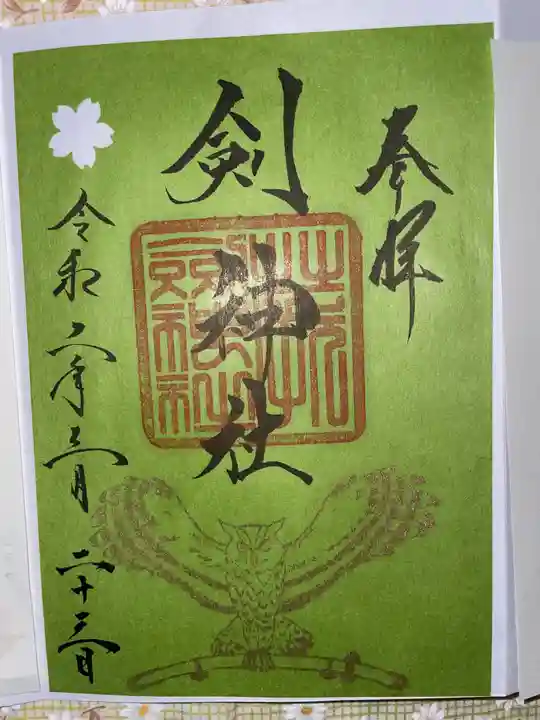 奉拝
剣神社
令和二年三月二十三日